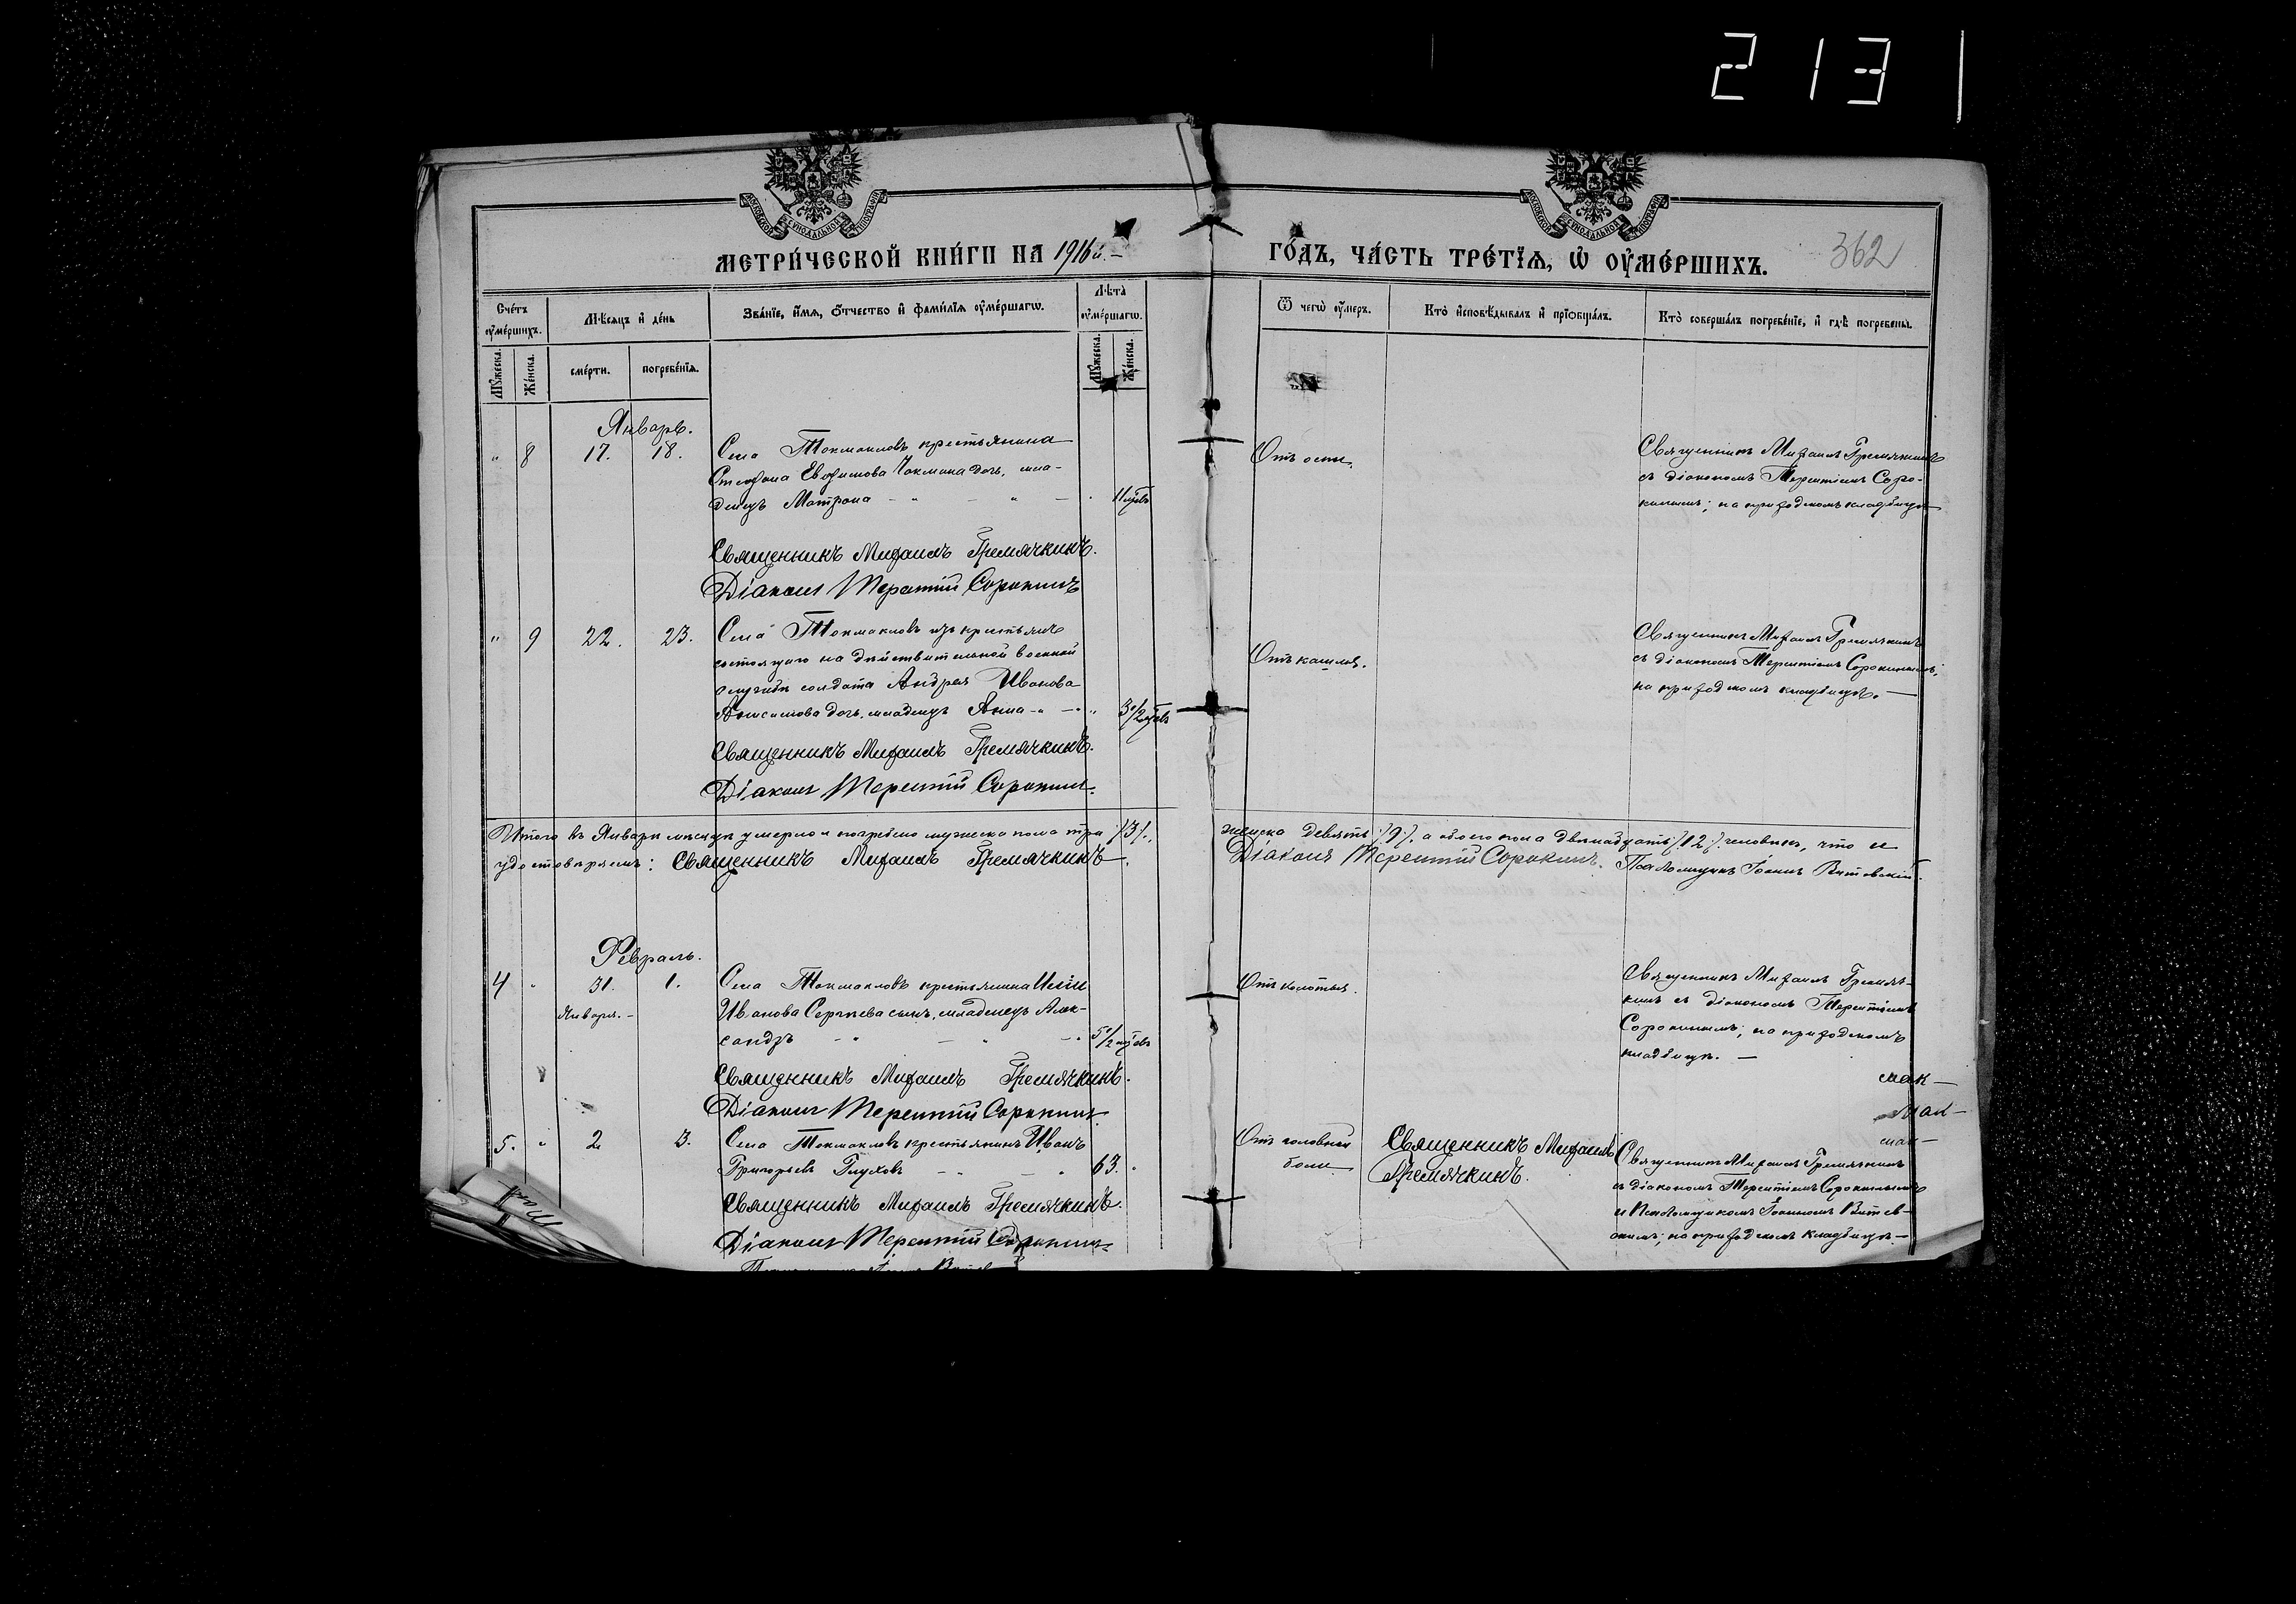 2131
МЕТРИ́ЧЕСКОЙ КНИ́ГИ НА 1916й.–
ГО́ДЪ, ЧА́СТЬ ТРЕ́ТЇѦ, Ѡ҆ ОУ҆МЕ́РШИХЪ.
362
Сче́тъ оу҆ме́ршихъ.
Мꙋ́жеска.
Же́нска.
Мѣ́сяцъ и҆ де́нь
сме́рти.
погребе́нїѧ.
Зва́нїе, и҆́мѧ, ѻ҆́тчество и҆ фами́лїѧ оу҆ме́ршагѡ.
Лѣта̀ оу҆ме́ршагѡ.
Мꙋ́жеска.
Же́нска.
Ѿ чегѡ̀ оу҆́меръ.
Кто̀ и҆сповѣ́дывалъ и҆ прїѻбща́лъ.
Кто̀ соверша́лъ погребе́нїе, и҆ гдѣ̀ погребены̀.
Январь.
" 8 17. 18.
Села Токмакловъ крестьянина
Стефана Евфимова Чокмана дочь, мла-
денецъ Матрона – " – " – . 11 мѣ
Отъ оспы.
Священникъ Михаилъ Гремячкинъ
съ діакономъ Терентіемъ Соро-
кинымъ; на приходскомъ кладбищѣ
Священникъ Михаилъ Гремячкинъ.
Діаконъ Терентій Сорокинъ
" 9 22. 23.
Села Токмакловъ изъ крестьянъ
состоящаго на дѣйствительной военной
службѣ солдата Андрея Иванова
Анисимова дочь, младенецъ Анна – " – " 3 1/2 мѣ
Отъ кашля.
Священникъ Михаилъ Гремячкинъ
съ діакономъ Терентіемъ Сорокинымъ;
на приходскомъ кладбищѣ. –
Священникъ Михаилъ Гремячкинъ.
Діаконъ Терентій Сорокинъ.
Итого въ Январѣ мѣсяцѣ умерло и погребено мужеска пола три /3/, женска девять /9/, а обоего пола двѣнадцать /12/ человѣкъ, что и
удостовѣряемъ: Священникъ Михаилъ Гремячкинъ. Діаконъ Терентій Сорокинъ. Псаломщикъ Іоаннъ Витевскій.
Февраль.
4 " 31. 1.
Января. –
Села Токмакловъ крестьянина Иліи
Иванова Сергѣева сынъ, младенецъ Алек-
сандръ – " – " – . 5 1/2 мѣ
Отъ колотья.
Священникъ Михаилъ Гремяч-
кинъ съ діакономъ Терентіемъ
Сорокинымъ; на приходскомъ
кладбищѣ. –
Священникъ Михаилъ Гремячкинъ.
Діаконъ Терентій Сорокинъ.
5. " 2 3.
Села Токмакловъ крестьянинъ Иванъ
Григорьевъ Глуховъ – " – " 63. "
Отъ головной
боли
Священникъ Михаилъ
Гремячкинъ.
Священникъ Михаилъ Гремячкинъ
съ діакономъ Терентіемъ Сорокинымъ
и Псаломщикомъ Іоанномъ Витев-
скимъ; на приходскомъ кладбищѣ –
Священникъ Михаилъ Гремячкинъ.
Діаконъ Терентій Сорокинъ.